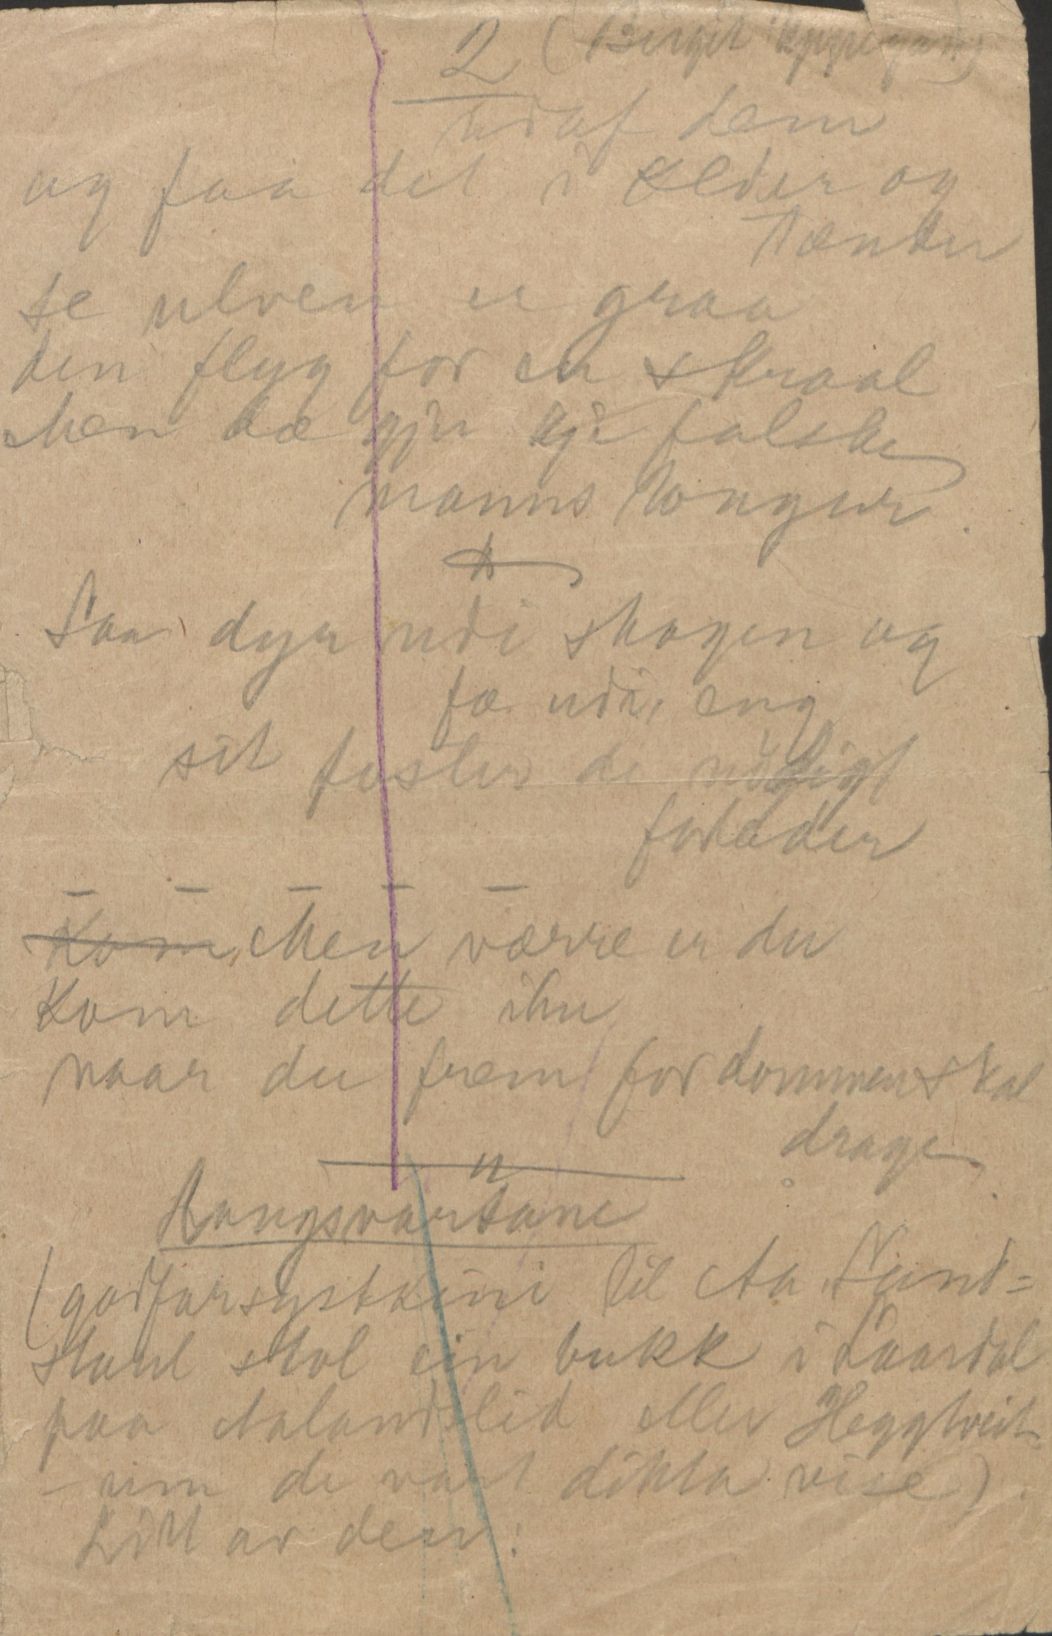 2 (Birgit Uppigar)
udaf dem
og faa det i Elder og
Tænder
se ulven er graa
den flyg for en skraal
Men dæ gjer kje falske
manns Tonger.
Saa dyr udi skogen og
fæ udi eng
sit foster de nødigt
forlader
Kom Men værre er du
Kom dette ihu
naar du frem for dommen skal
drage
Rangsvartane
(godfarsystaini til Aa Sund=
staul stol ein bukk i Laardal
paa Aalandslid eller Heggtveit
- um de vart dikta vise).
Litt av den: